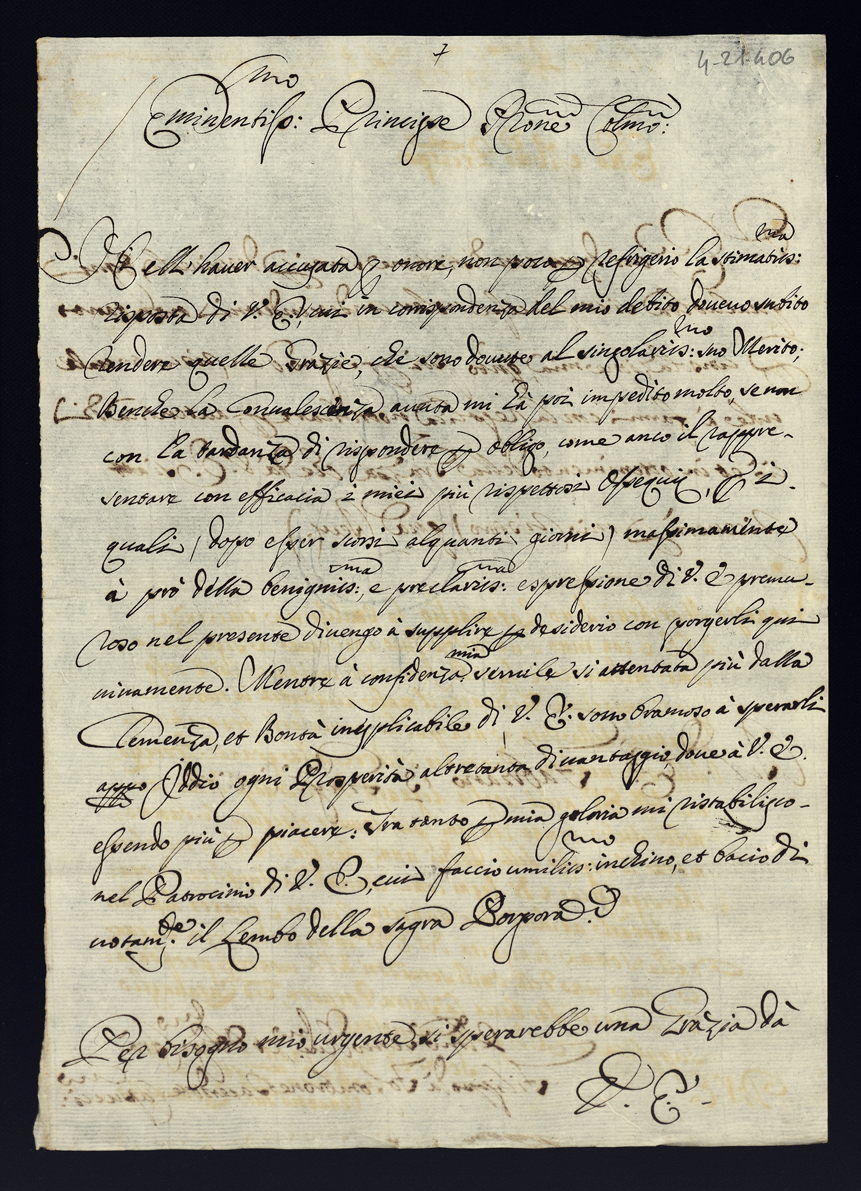 7
4-21-406
Eminentiss:mo Principe Prone Colmo:
Nell haver accusata p onore, non poca p refrigerio la stimatiss:ma
risposta di V. E, cui in corrispondenza del mio debito dovevo subito
rendere quelle Grazie, che sono dovute al singolariss:mo suo Merito;
Benche la Convalescenza avuta mi hà poi impedito molto, se non
con la tardanza di rispondere p obligo, come anco il rappre-
sentare con efficacia i miei più rispettosi Ossequij, P i
quali (dopo esser scorsi alquanti giorni) massimamente
à prò della benigniss:ma, e preclariss:ma espressione di V. E premu-
roso nel presente divengo à supplire p desiderio con porgerli qui
vivamente. Mentre à confidenza mia servile si attentata più dalla
Clemenza, et Bontà inesplicabile di V. E. sono bramoso à sperarli
appo Iddio ogni Prosperità altretanta di vantaggio, dove à V. E.
essendo più p piacere: Tra tanto p mia gloria mi ristabilisco
nel Patrocinio di V. E, cui faccio umiliss:mo inchino, et bacio di
votam:te il Lembo della sagra Porpora.
Per bisogno mio urgente si sperarebbe una Grazia dà
V. E.